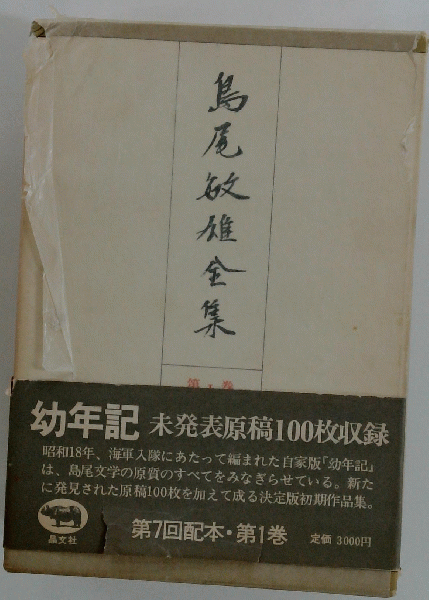 島尾敏雄全集
第1巻
幼年記 未発表原稿100枚収録
昭和18年、海軍入隊にあたって編まれた自家版「幼年記」
は、島尾文学の原質のすべてをみなぎらせている。新た
に発見された原稿100枚を加えて成る決定版初期作品集。
晶文社
第7回配本・第1巻
定価 3000円